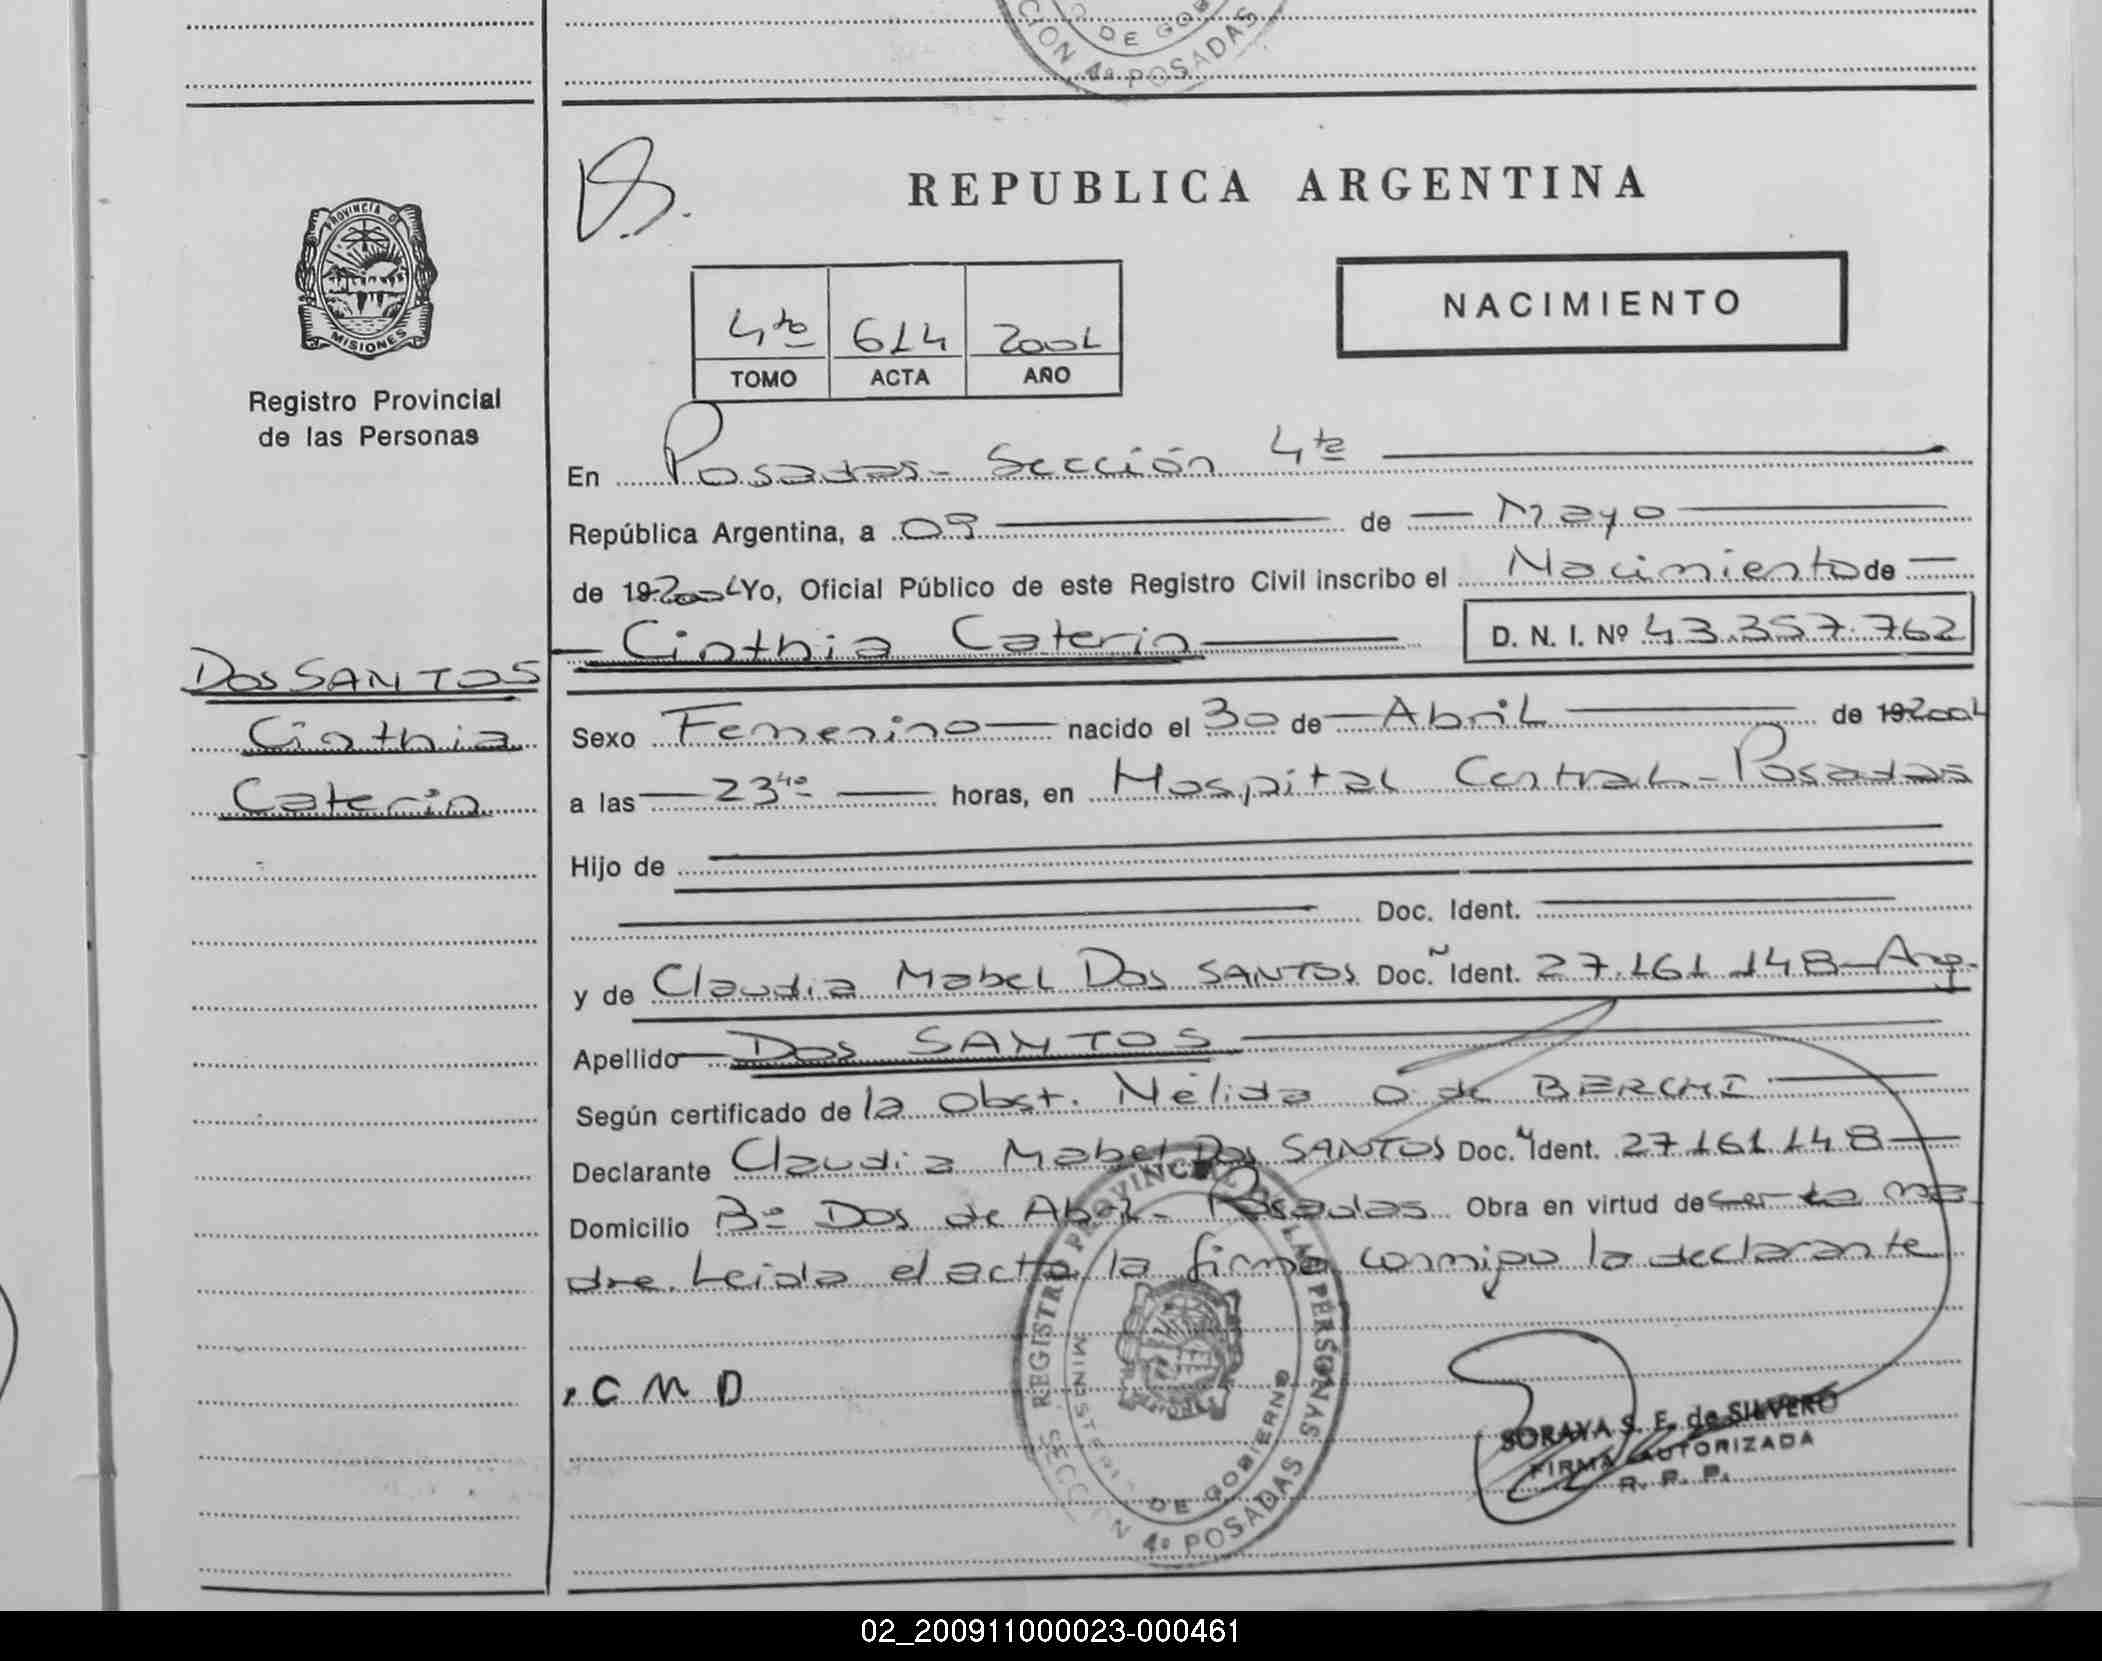 DE GOB
CION 4ª POSADAS
REPUBLICA ARGENTINA
PROVINCIA DE
MISIONES
Registro Provincial
de las Personas
NACIMIENTO
4to 614 2001
TOMO ACTA AÑO
En Posadas - Sección 4ta
República Argentina, a 09 de Mayo
de 19 2001 Yo, Oficial Público de este Registro Civil inscribo el Nacimiento de
Cinthia Caterin D. N. I. Nº 43.357.762
DOS SANTOS
Cinthia
Caterin
Sexo Femenino nacido el 30 de Abril de 19 2001
a las 23 40 horas, en Hospital Central - Posadas
Hijo de
Doc. Ident.
y de Claudia Mabel Dos SANTOS Doc. Ident. 27.161.148 - Arg.
Apellido Dos SANTOS
Según certificado de la Obst. Nélida O de BERCHI
Declarante Claudia Mabel Dos SANTOS Doc. Ident. 27.161.148
Domicilio Bº Dos de Abril - Posadas Obra en virtud de ser la ma-
dre. Leida el acta, la firma conmigo la declarante
C M D
REGISTRO PROVINCIAL DE LAS PERSONAS
MINISTERIO DE GOBIERNO
SECCION 4ª POSADAS
SORAYA S. F. de SILVERO
FIRMA AUTORIZADA
R. P. P.
02_200911000023-000461